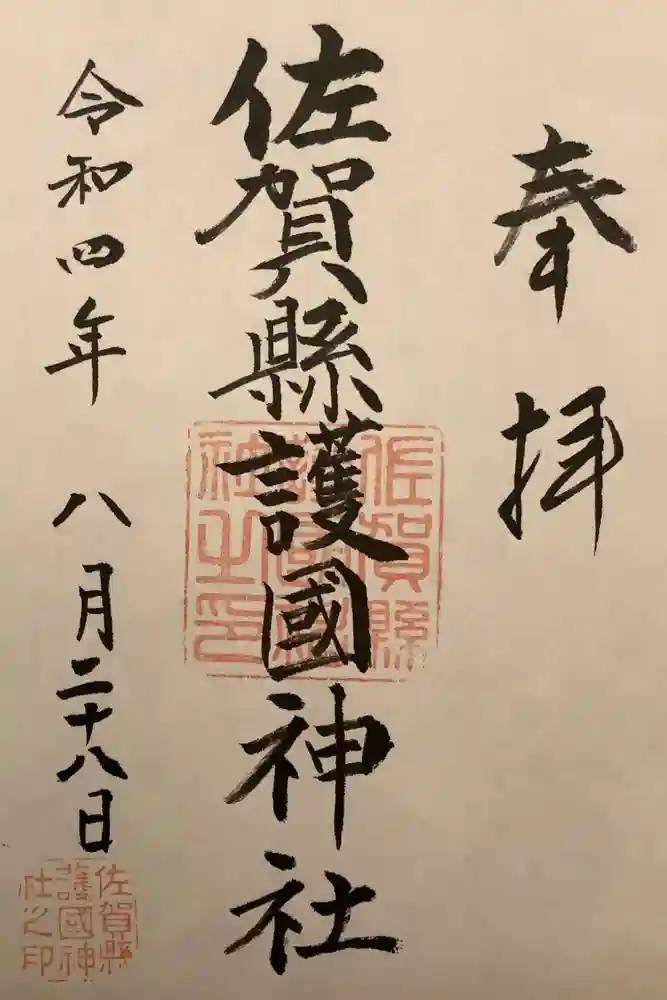 奉拝
佐賀縣護國神社
令和四年 八月二十八日
佐賀縣
護國神
社之印
佐賀縣
護國神
社之印